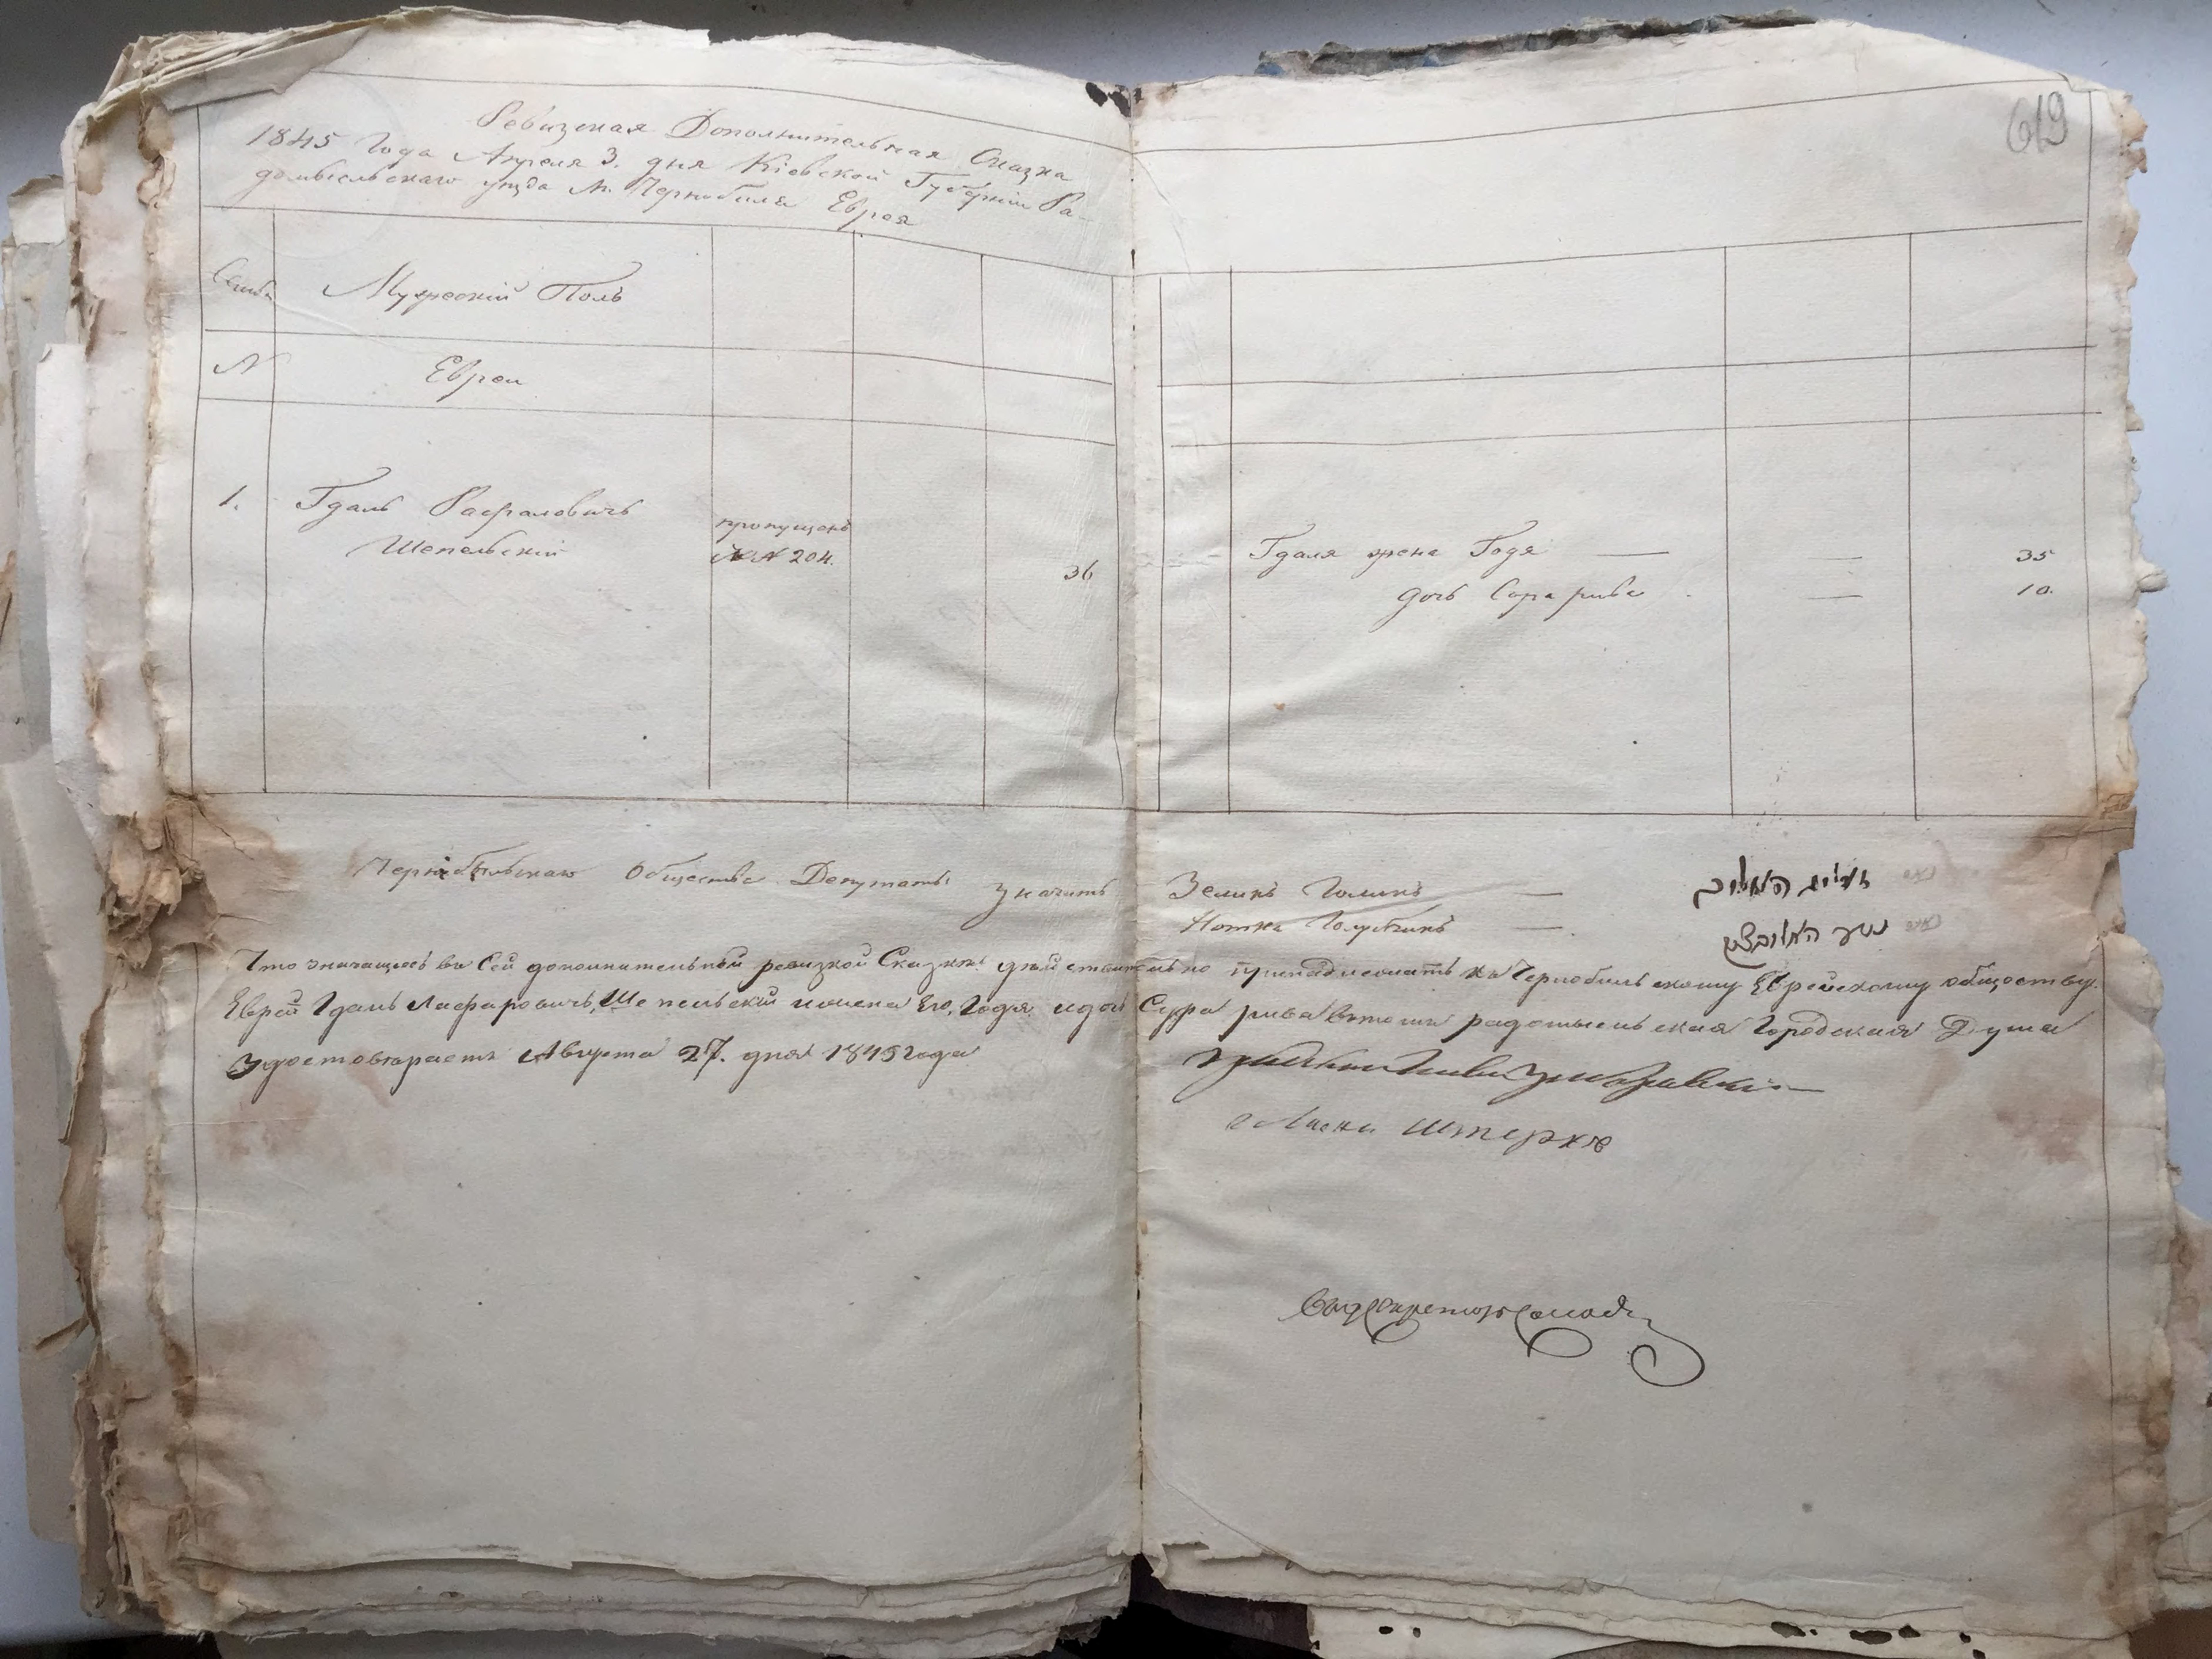 619
Ревизская Дополнительная Сказка
1845 Года Апреля 3. дня Кіевской Губерніи Ра-
домысльскаго уезда М. Чернобыля Еврея
Семьи Мужескій Полъ
N Евреи
1. Гдаль Расраловичъ пропущенъ
Шепельскій N 204. 36
Гдаля жена Годя — — 35
дочь Сора рива — 10.
Чернобыльскаго Общества Депутаты Зеликъ Голикъ —
Нотка Голубчикъ —
Что значащіесь въ Сей дополнительной ревизкой Сказки действительно принадлежатъ къ Чернобыльскому Еврейскому обществу
Еврей Гдаль Ласфаровичъ, Шепельскій ижена Его, Годя идочь Сура рива вътомъ радомысльская Городская Дума
Удостоверяетъ Августа 27. дня 1845 года
Штеркъ